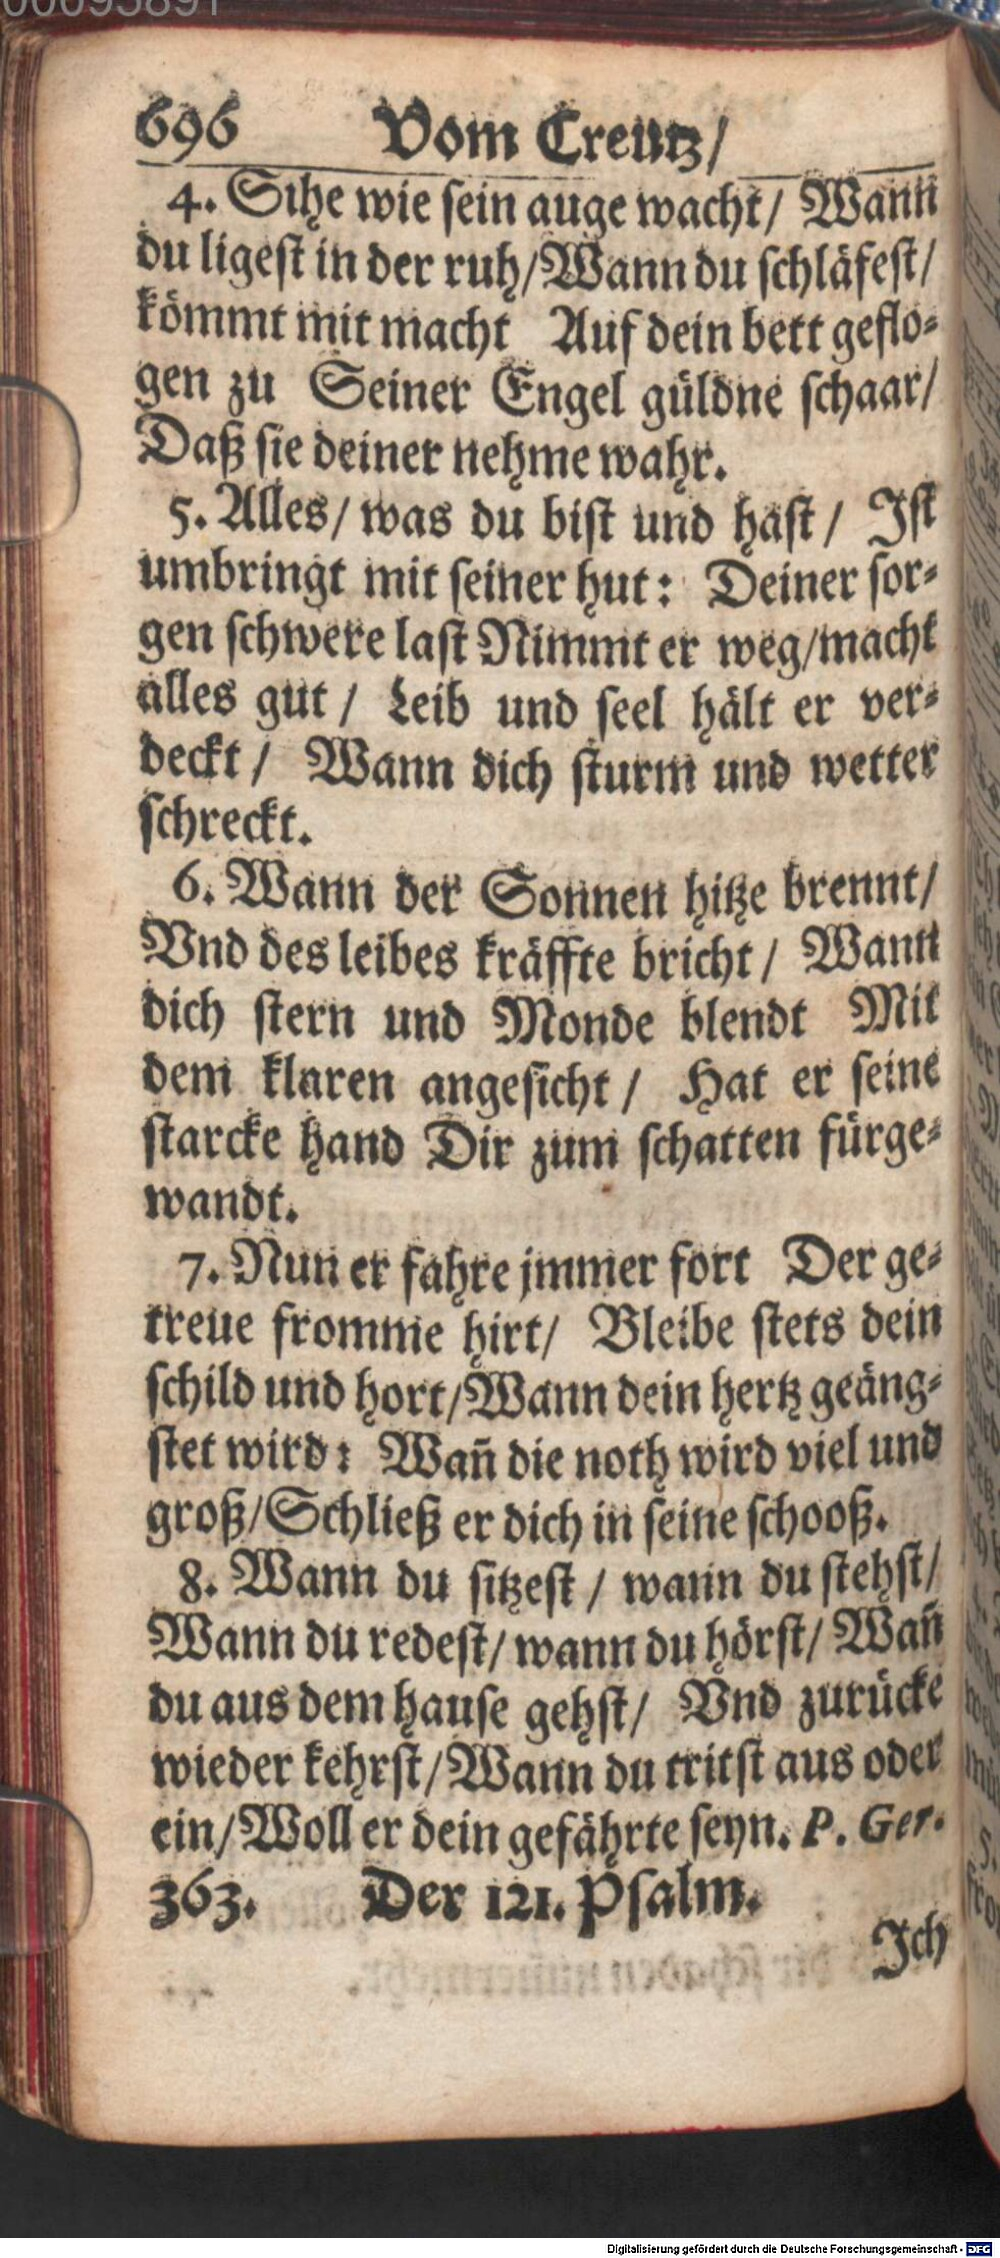 00095891
696 Vom Creutz/
4. Sihe wie sein auge wacht/ Wann
du ligest in der ruh/Wann du schläfest/
kömmt mit macht Auf dein bett geflo-
gen zu Seiner Engel güldne schaar/
Daß sie deiner nehme wahr.
5. Alles/ was du bist und hast/ Ist
umbringt mit seiner hut: Deiner sor-
gen schwere last Nimmt er weg/macht
alles gut/ Leib und seel hält er ver-
deckt/ Wann dich sturm und wetter
schreckt.
6. Wann der Sonnen hitze brennt/
Vnd des leibes kräffte bricht/ Wann
dich stern und Monde blendt Mit
dem klaren angesicht/ Hat er seine
starcke hand Dir zum schatten fürge-
wandt.
7. Nun er fahre jmmer fort Der ge-
treue fromme hirt/ Bleibe stets dein
schild und hort/Wann dein hertz geäng-
stet wird: Wañ die noth wird viel und
groß/Schließ er dich in seine schooß.
8. Wann du sitzest/ wann du stehst/
Wann du redest/ wann du hörst/ Wañ
du aus dem hause gehst/ Vnd zurücke
wieder kehrst/Wann du tritst aus oder
ein/Woll er dein gefährte seyn. P. Ger.
363. Der 121. Psalm.
Ich
Digitalisierung gefördert durch die Deutsche Forschungsgemeinschaft - DFG